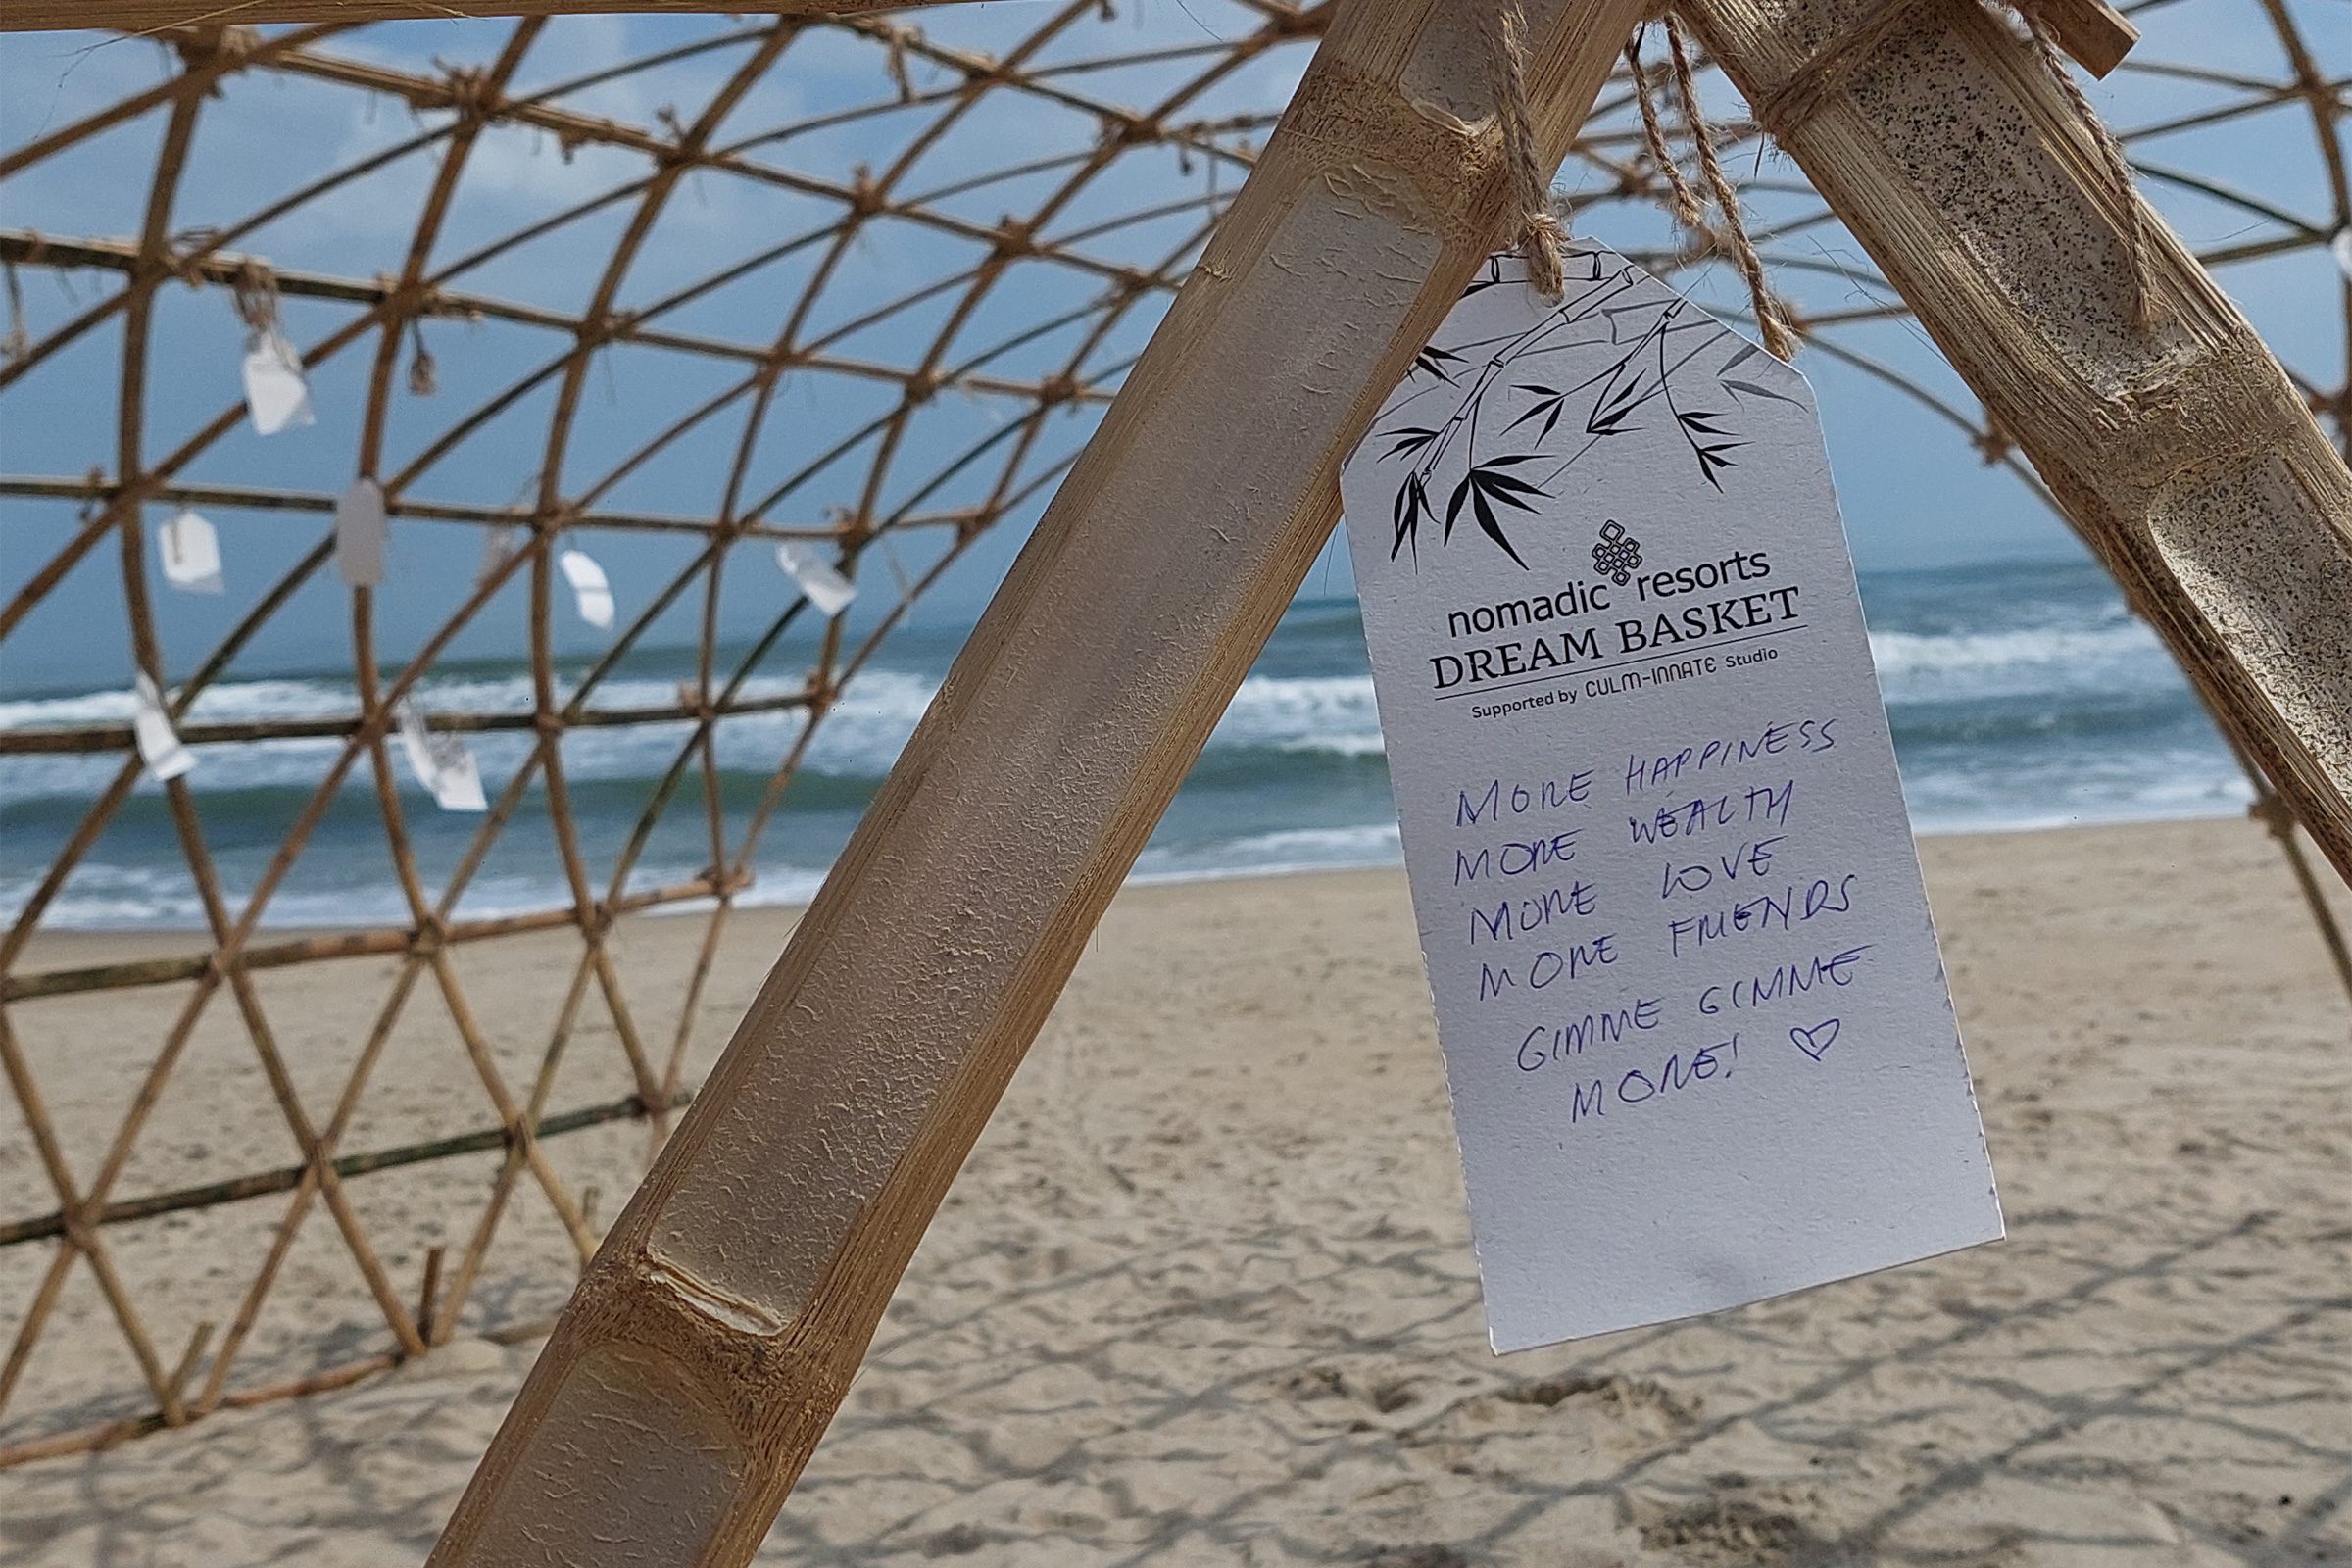 nomadic resorts
DREAM BASKET
Supported by CULM-INNATE Studio
MORE HAPPINESS
MORE WEALTH
MORE LOVE
MORE FRIENDS
GIMME GIMME
MORE! ♡